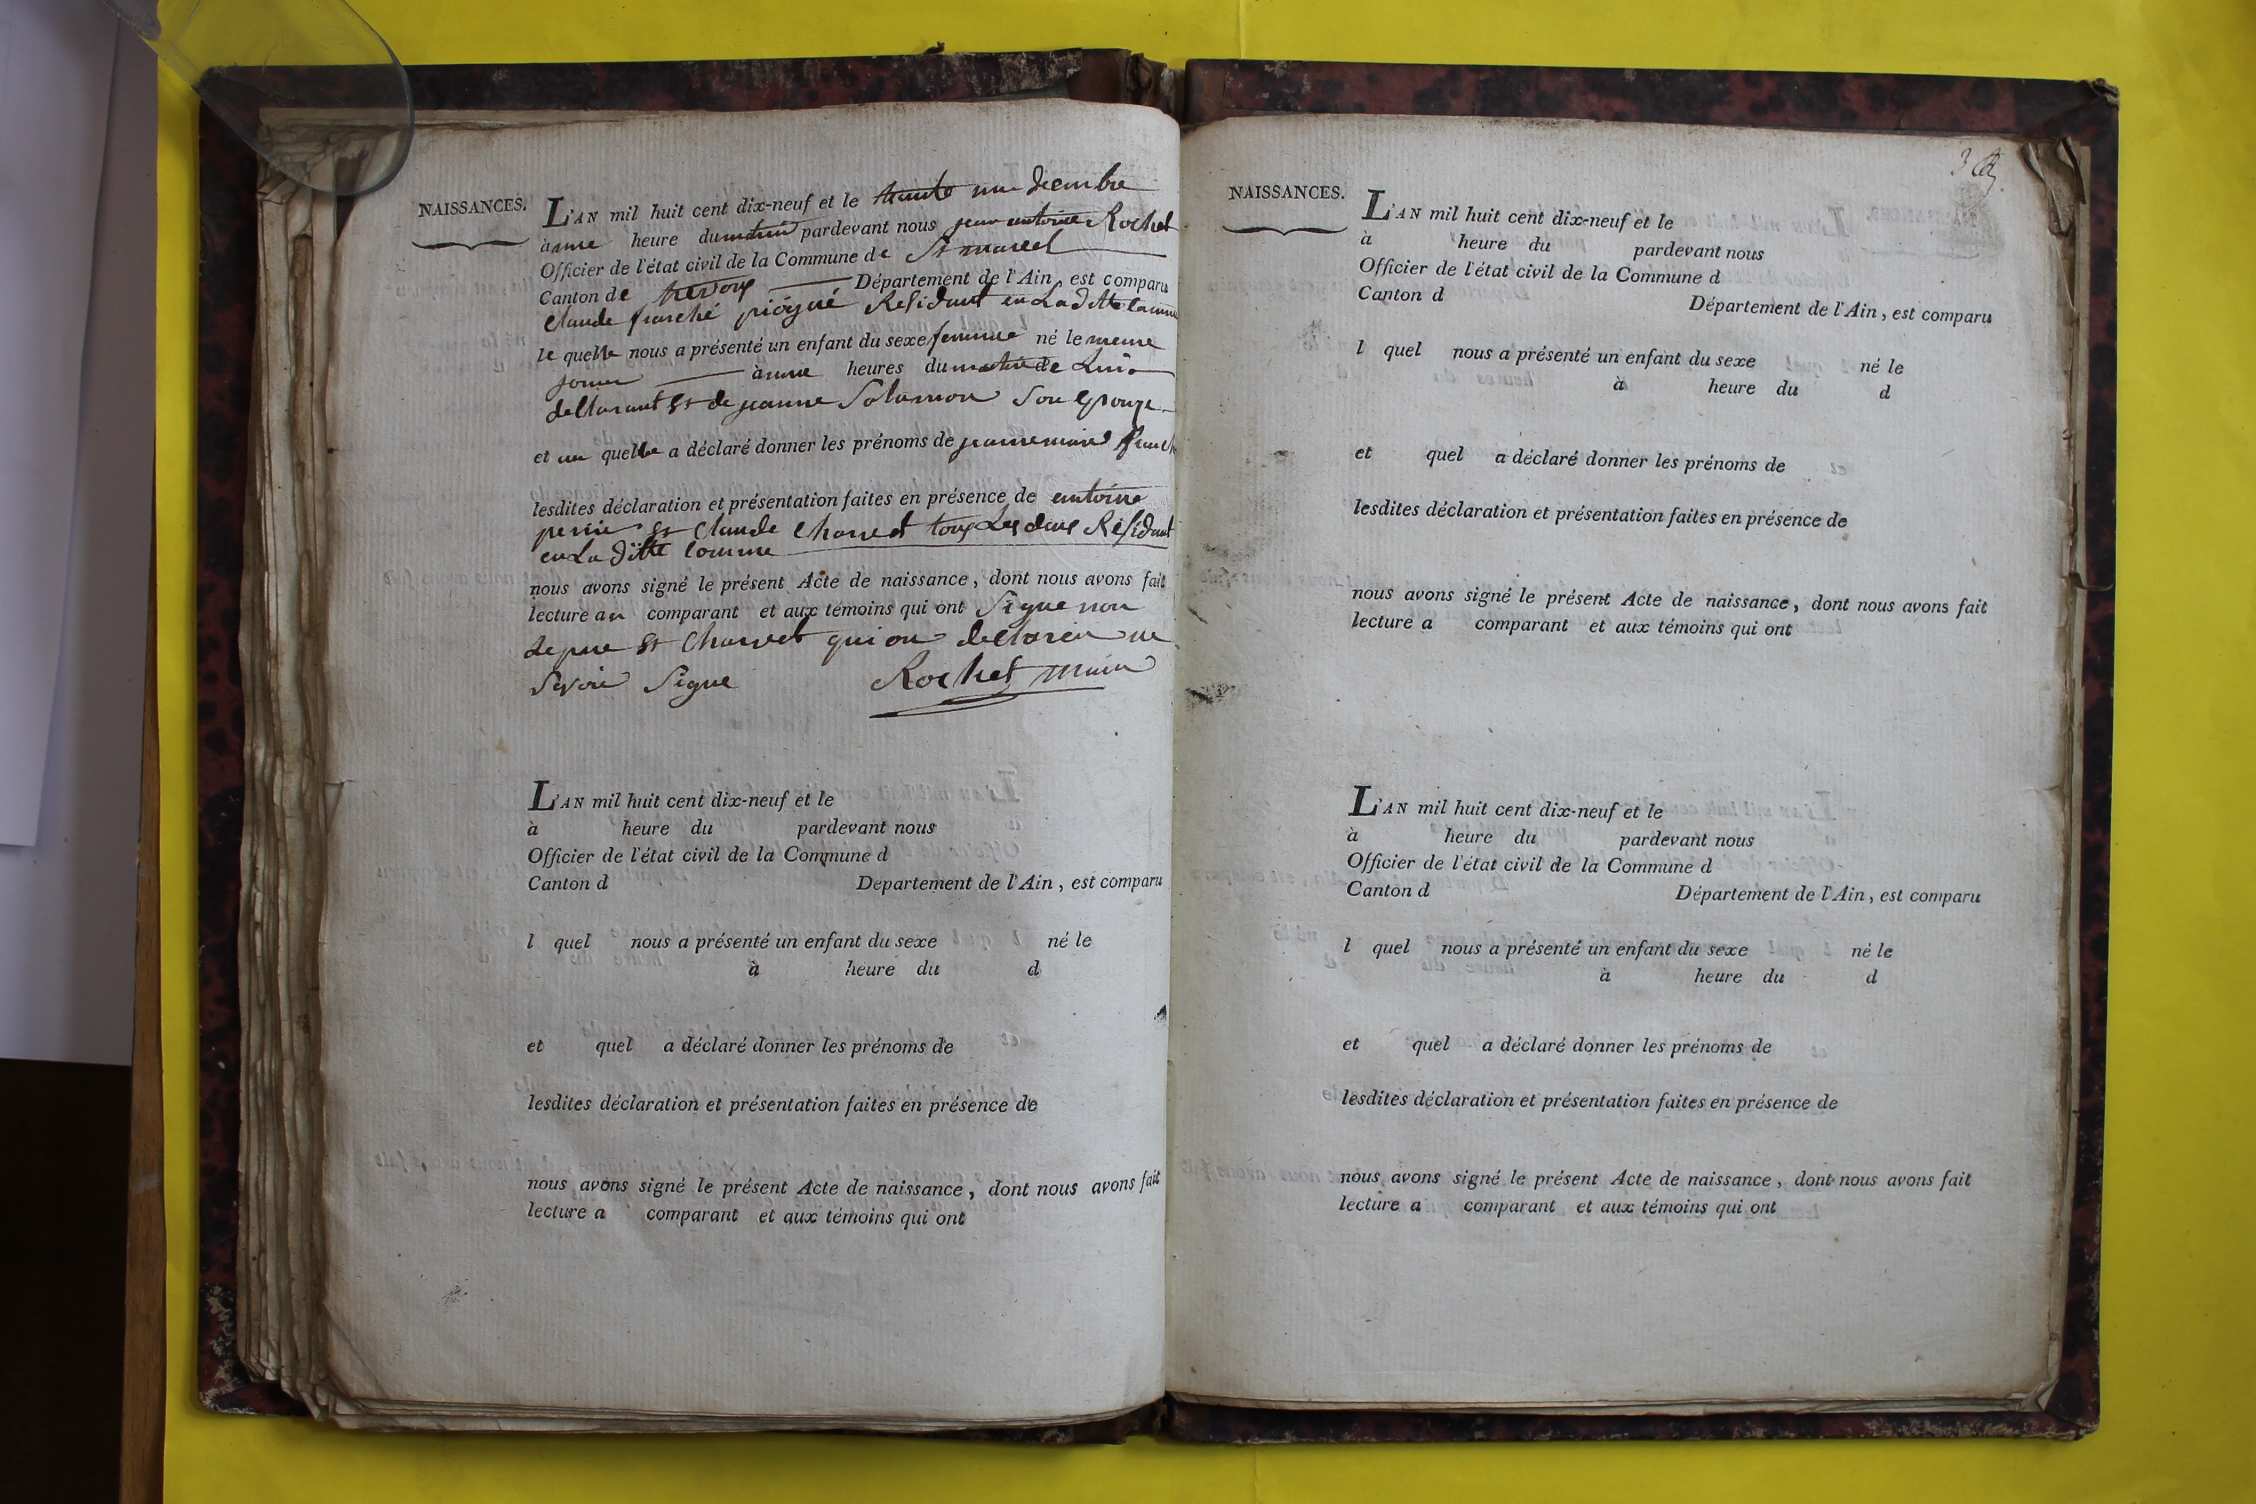 NAISSANCES.
L'AN mil huit cent dix-neuf et le trante une decmbre
à une heure du matin pardevant nous jean antoine Rochet
Officier de l'état civil de la Commune de St marcel
Canton de trevoux Département de l'Ain, est comparu
Claude franché Residant en La ditte comme
le quelle nous a présenté un enfant du sexe femme né le meme
jour à une heures du matin de Lui
declarant et de jeanne Solamon Son epouze
et au quelle a déclaré donner les prénoms de jeanne marie
lesdites déclaration et présentation faites en présence de antoine
perrie et Claude Charvet tous Les deux Résidant
en La ditte Comme
nous avons signé le présent Acte de naissance, dont nous avons fait
lecture au comparant et aux témoins qui ont Signe non
le pere et Charvet qui on declarer ne
Savoir Signe Rochet maire
L'AN mil huit cent dix-neuf et le
à heure du pardevant nous
Officier de l'état civil de la Commune d
Canton d Département de l'Ain, est comparu
l quel nous a présenté un enfant du sexe né le
à heure du d
et quel a déclaré donner les prénoms de
lesdites déclaration et présentation faites en présence de
nous avons signé le présent Acte de naissance, dont nous avons fait
lecture a comparant et aux témoins qui ont
NAISSANCES.
L'AN mil huit cent dix-neuf et le
à heure du pardevant nous
Officier de l'état civil de la Commune d
Canton d Département de l'Ain, est comparu
l quel nous a présenté un enfant du sexe né le
à heure du d
et quel a déclaré donner les prénoms de
lesdites déclaration et présentation faites en présence de
nous avons signé le présent Acte de naissance, dont nous avons fait
lecture a comparant et aux témoins qui ont
L'AN mil huit cent dix-neuf et le
à heure du pardevant nous
Officier de l'état civil de la Commune d
Canton d Département de l'Ain, est comparu
l quel nous a présenté un enfant du sexe né le
à heure du d
et quel a déclaré donner les prénoms de
lesdites déclaration et présentation faites en présence de
nous avons signé le présent Acte de naissance, dont nous avons fait
lecture a comparant et aux témoins qui ont